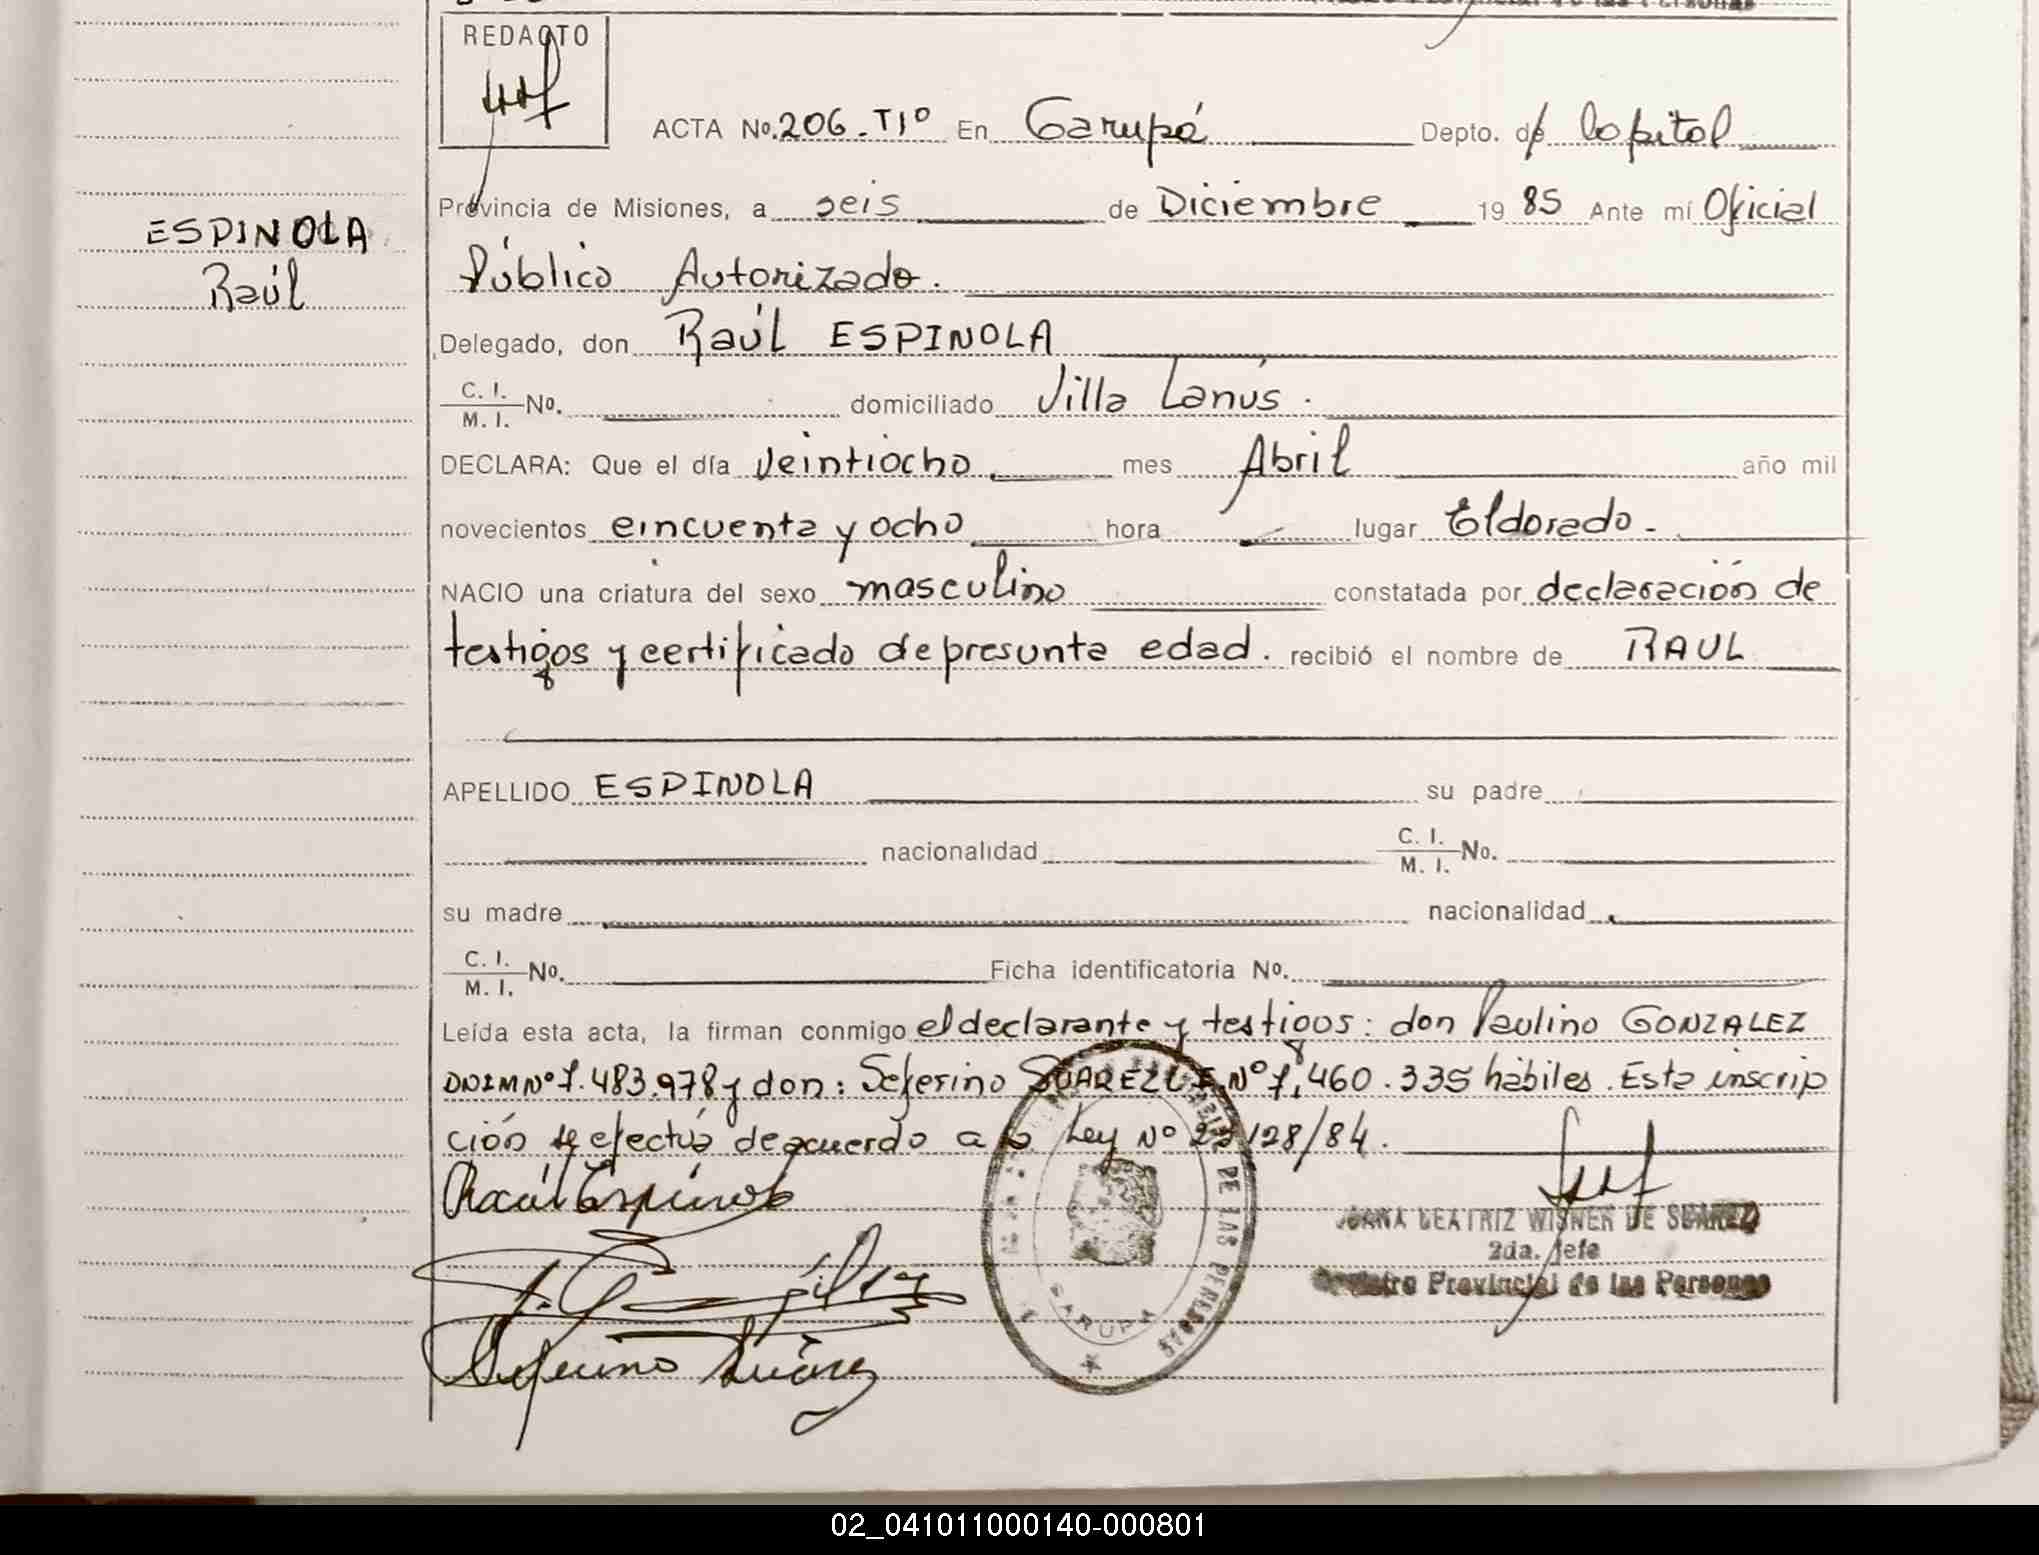 REDACTO
ACTA No. 206. T1º En Garupá Depto. de Capital
Provincia de Misiones, a seis de Diciembre 19 85 Ante mí Oficial
ESPINOLA
Raúl
Público Autorizado.
Delegado, don Raúl ESPINOLA
C. I.
M. I. No. domiciliado Villa Lanús.
DECLARA: Que el día veintiocho mes Abril año mil
novecientos cincuenta y ocho hora lugar Eldorado.
NACIO una criatura del sexo masculino constatada por declaración de
testigos y certificado de presunta edad. recibió el nombre de RAUL
APELLIDO ESPINOLA su padre
nacionalidad C. I.
M. I. No.
su madre nacionalidad
C. I.
M. I. No. Ficha identificatoria No.
Leída esta acta, la firman conmigo el declarante y testigos: don Paulino GONZALEZ
DNIM Nº 7.483.978 y don: Seferino SUAREZ L E Nº 7.460.335 hábiles. Esta inscrip
ción se efectúa de acuerdo a la Ley Nº 128/84.
Raúl Espinola
Seferino Suárez
JUANA BEATRIZ WISNER DE SUAREZ
2da. Jefe
Registro Provincial de las Personas
DE LAS PERSONAS
GARUPA
02_041011000140-000801